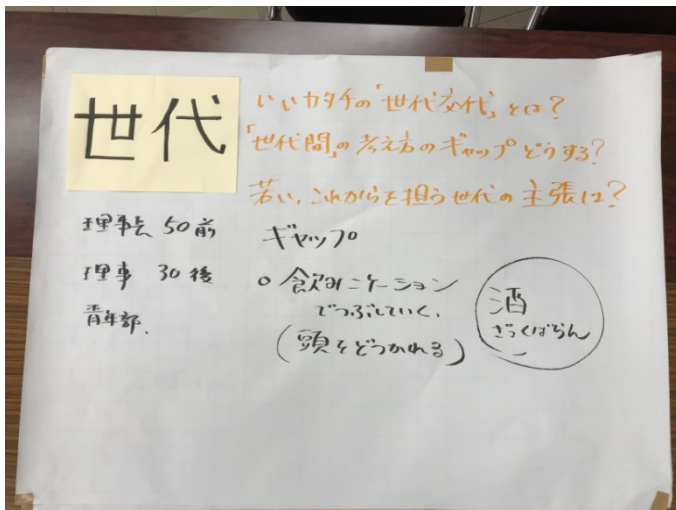 世代
いいカタチの「世代交代」とは?
「世代間」の考え方のギャップどうする?
若い、これからを担う世代の主張は?
理事長 50前
理事 30後
青年部、
ギャップ
○ 飲みニケーション
でつぶしていく、
(頭をどつかれる)
酒
ざっくばらん